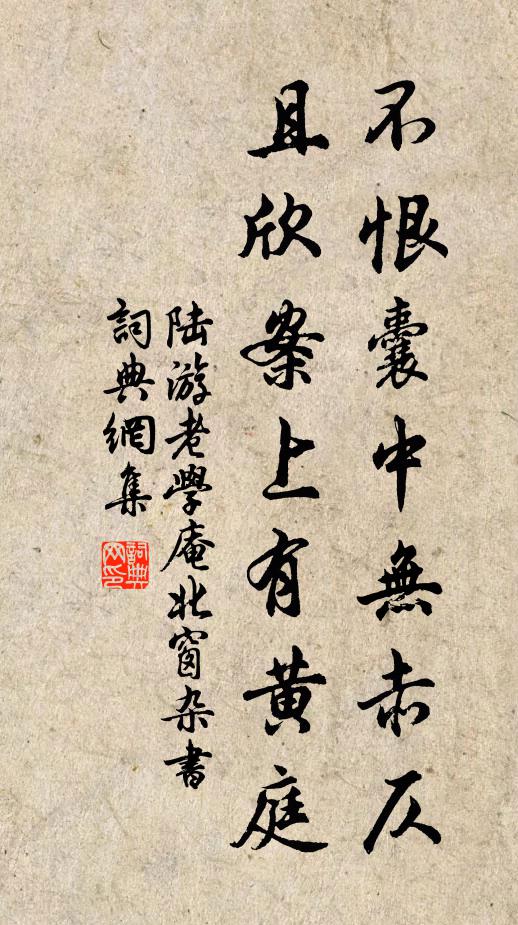 不恨囊中無赤仄
且欣案上有黄庭
陆游老學庵北窗杂書
詞典網集
詞典网印